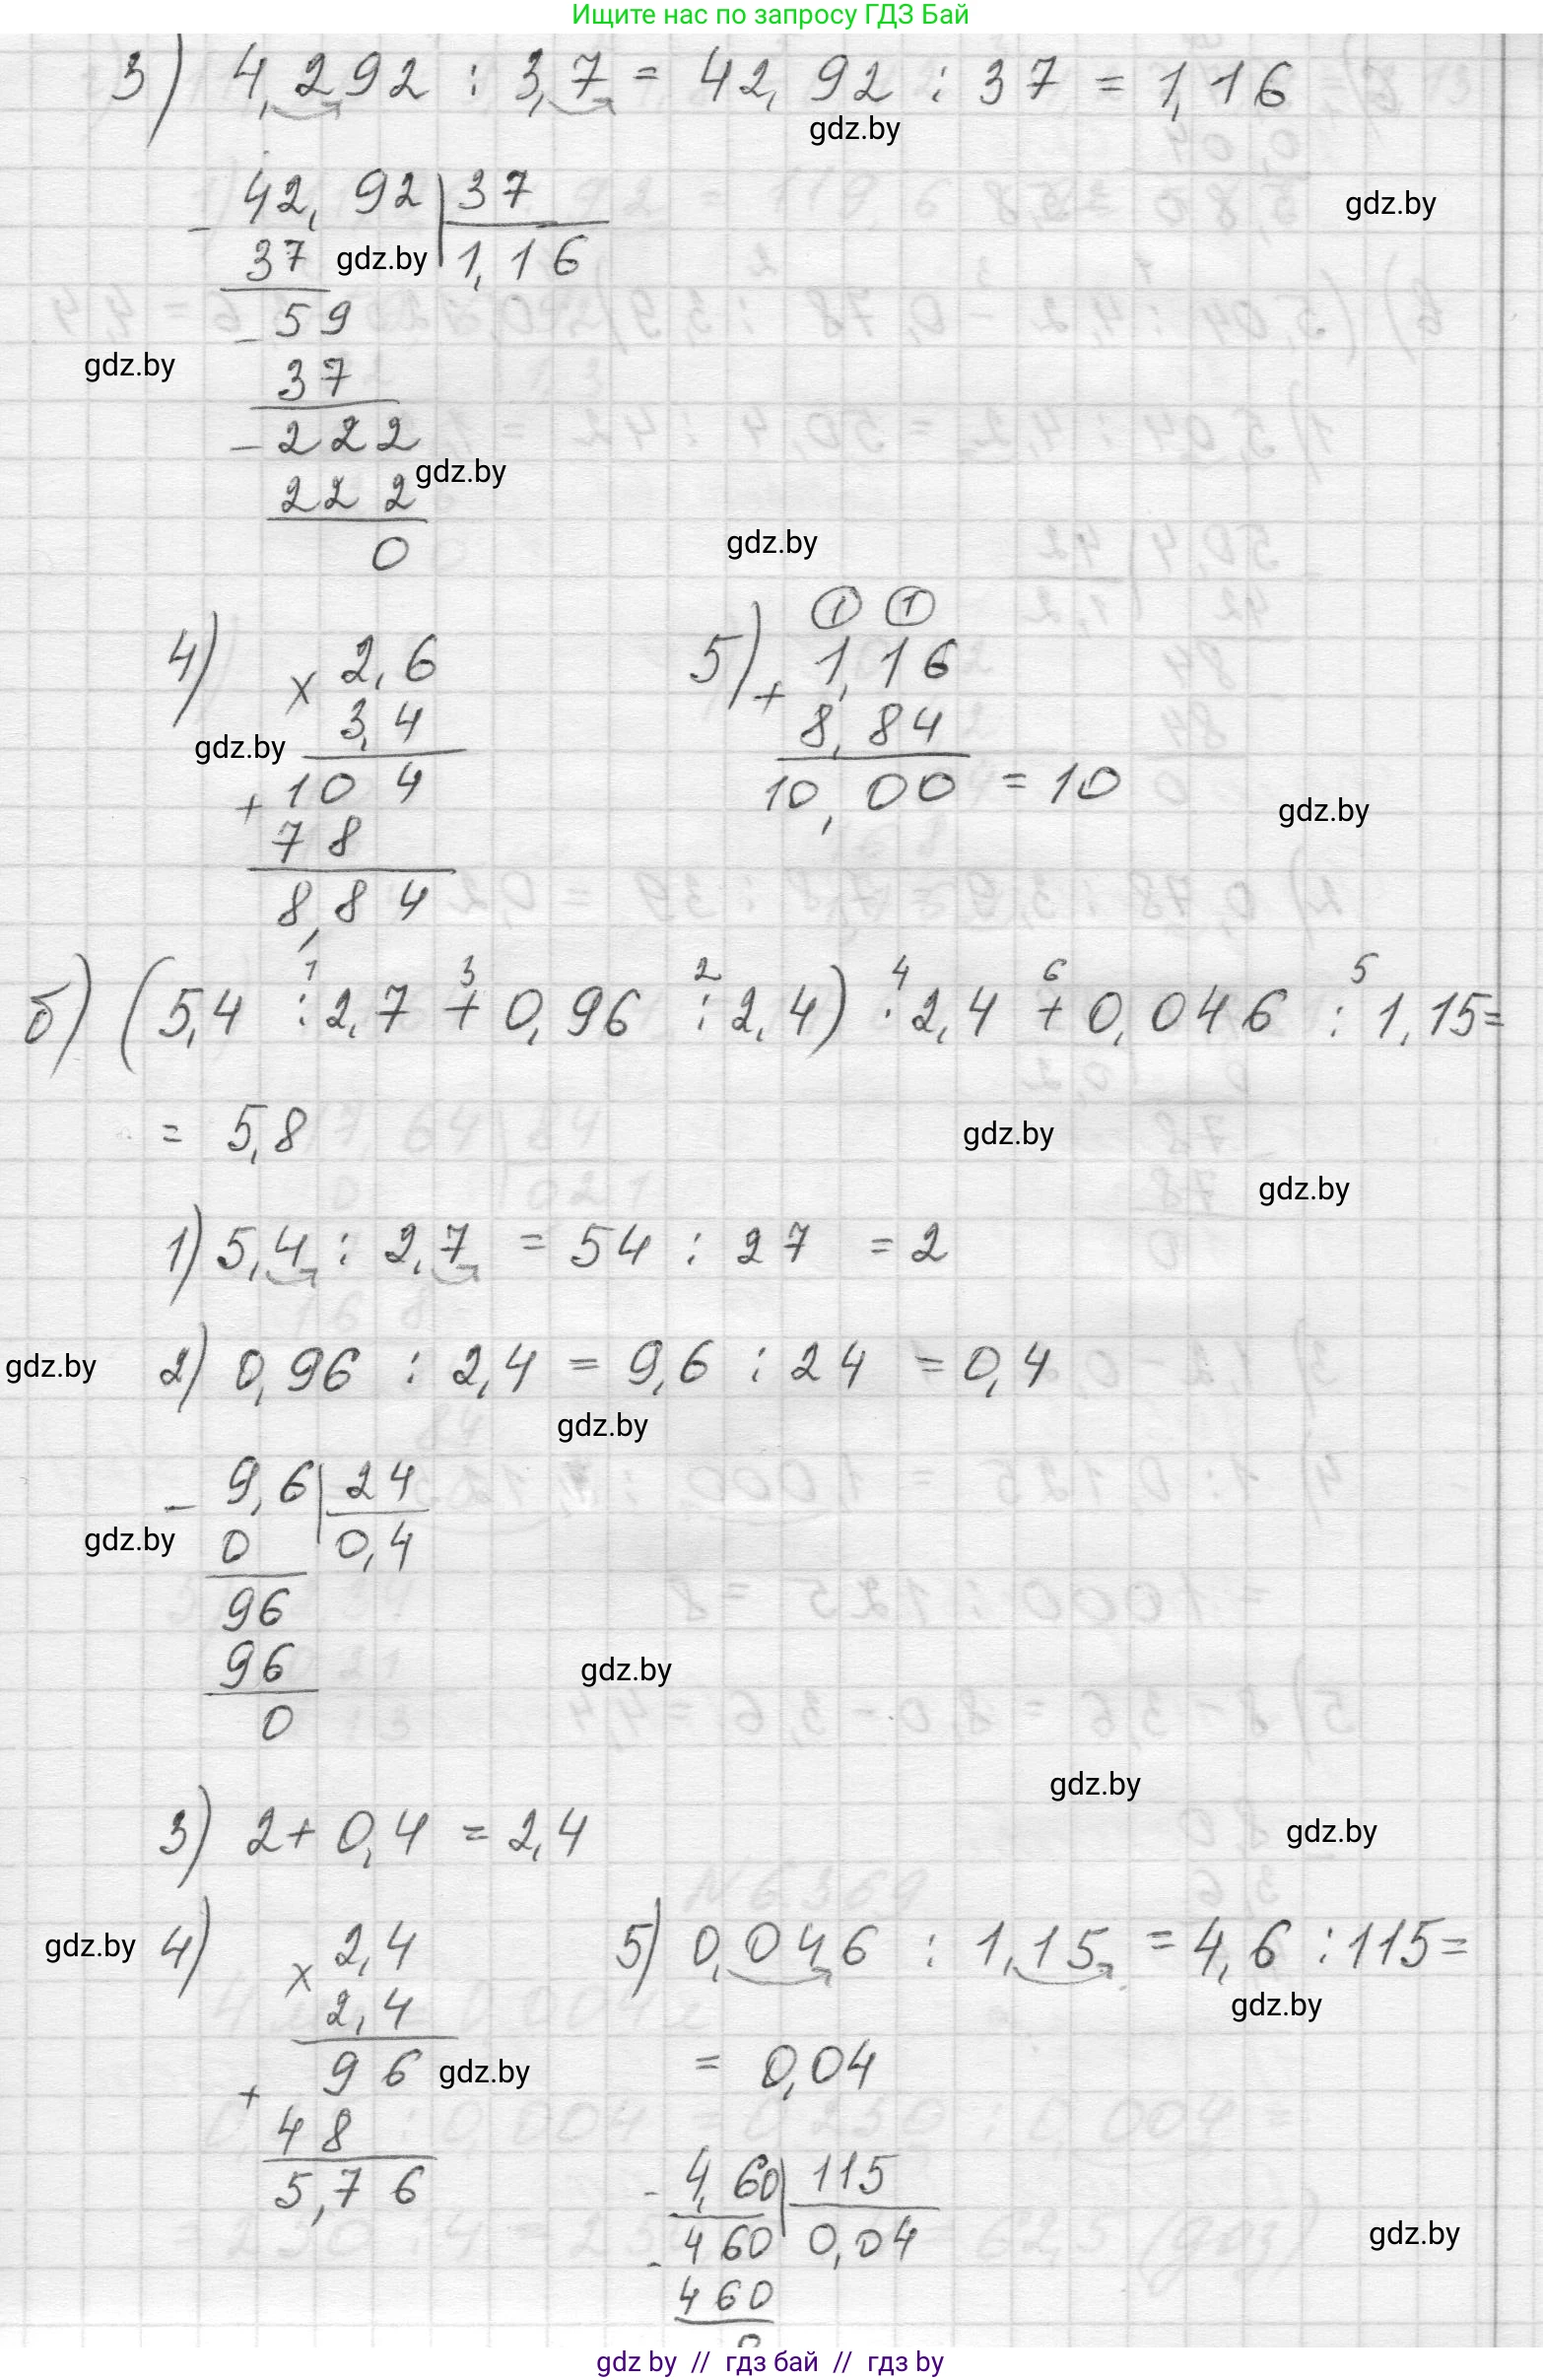 Ищите нас по запросу ГДЗ Бай
3) 4,292 : 3,7 = 42,92 : 37 = 1,16
gdz.by
gdz.by
- 42,92 | 37
37 gdz.by 1,16
- 59
gdz.by
37
- 222
gdz.by
222
0
gdz.by
4) × 2,6
3,4
gdz.by
+ 104
78
8,84
5) ① ①
+ 1,16
8,84
10,00 = 10
gdz.by
1 3 2 4 6 5
б) (5,4 : 2,7 + 0,96 : 2,4) · 2,4 + 0,046 : 1,15 =
= 5,8
gdz.by
gdz.by
1) 5,4 : 2,7 = 54 : 27 = 2
gdz.by 2) 0,96 : 2,4 = 9,6 : 24 = 0,4
gdz.by
- 9,6 | 24
gdz.by 0 0,4
96
96
gdz.by
0
gdz.by
3) 2 + 0,4 = 2,4
gdz.by
gdz.by 4) × 2,4
2,4
+ 96 gdz.by
48
5,76
5) 0,046 : 1,15 = 4,6 : 115 =
gdz.by
= 0,04
- 4,60 | 115
- 460 0,04
460
0
gdz.by
gdz by // гдз бай // gdz by